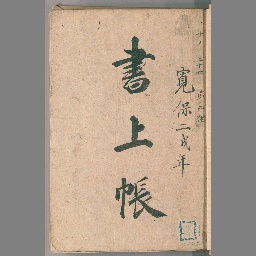 寛保二戌年
書上帳